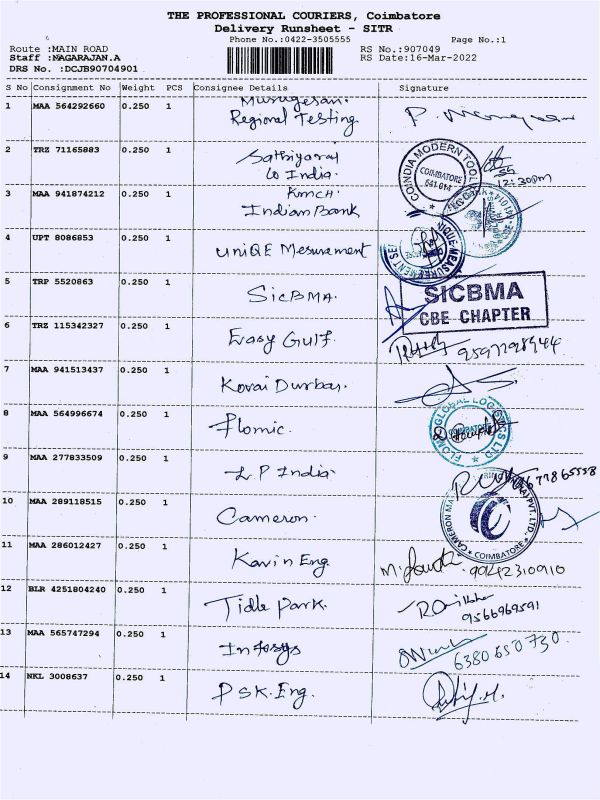 THE PROFESSIONAL COURIERS, Coimbatore
Delivery Runsheet - SITR
Phone No.:0422-3505555 Page No.:1
Route :MAIN ROAD RS No.:907049
Staff :NAGARAJAN.A RS Date:16-Mar-2022
DRS No. :DCJB90704901
S No Consignment No Weight PCS Consignee Details Signature
1 MAA 564292660 0.250 1 Murugesan.
Regional Testing
2 TRZ 71165883 0.250 1 Sathiyaraj
Co India.
COINDIA MODERN TOOL
COIMBATORE
641 014
12:30pm
3 MAA 941874212 0.250 1 KMCH.
Indian Bank
4 UPT 8086853 0.250 1 UNIQE Mesurement
UNIQUE MEASUREMENT
5 TRP 5520863 0.250 1 SicBMA.
SICBMA
CBE CHAPTER
6 TRZ 115342327 0.250 1 Easy Gulf.
7 MAA 941513437 0.250 1 Kovai Durbar.
8 MAA 564996674 0.250 1 Flomic.
FLOMIC GLOBAL LOGISTICS LTD
COIMBATORE
9 MAA 277833509 0.250 1 LP India.
10 MAA 289118515 0.250 1 Cameron.
CAMERON PVT. LTD.
COIMBATORE
11 MAA 286012427 0.250 1 Kavin Eng
9042310910
12 BLR 4251804240 0.250 1 Tidle Park.
9566969591
13 MAA 565747294 0.250 1 Infosys
6380 650 730
14 NKL 3008637 0.250 1 PSK.Eng.